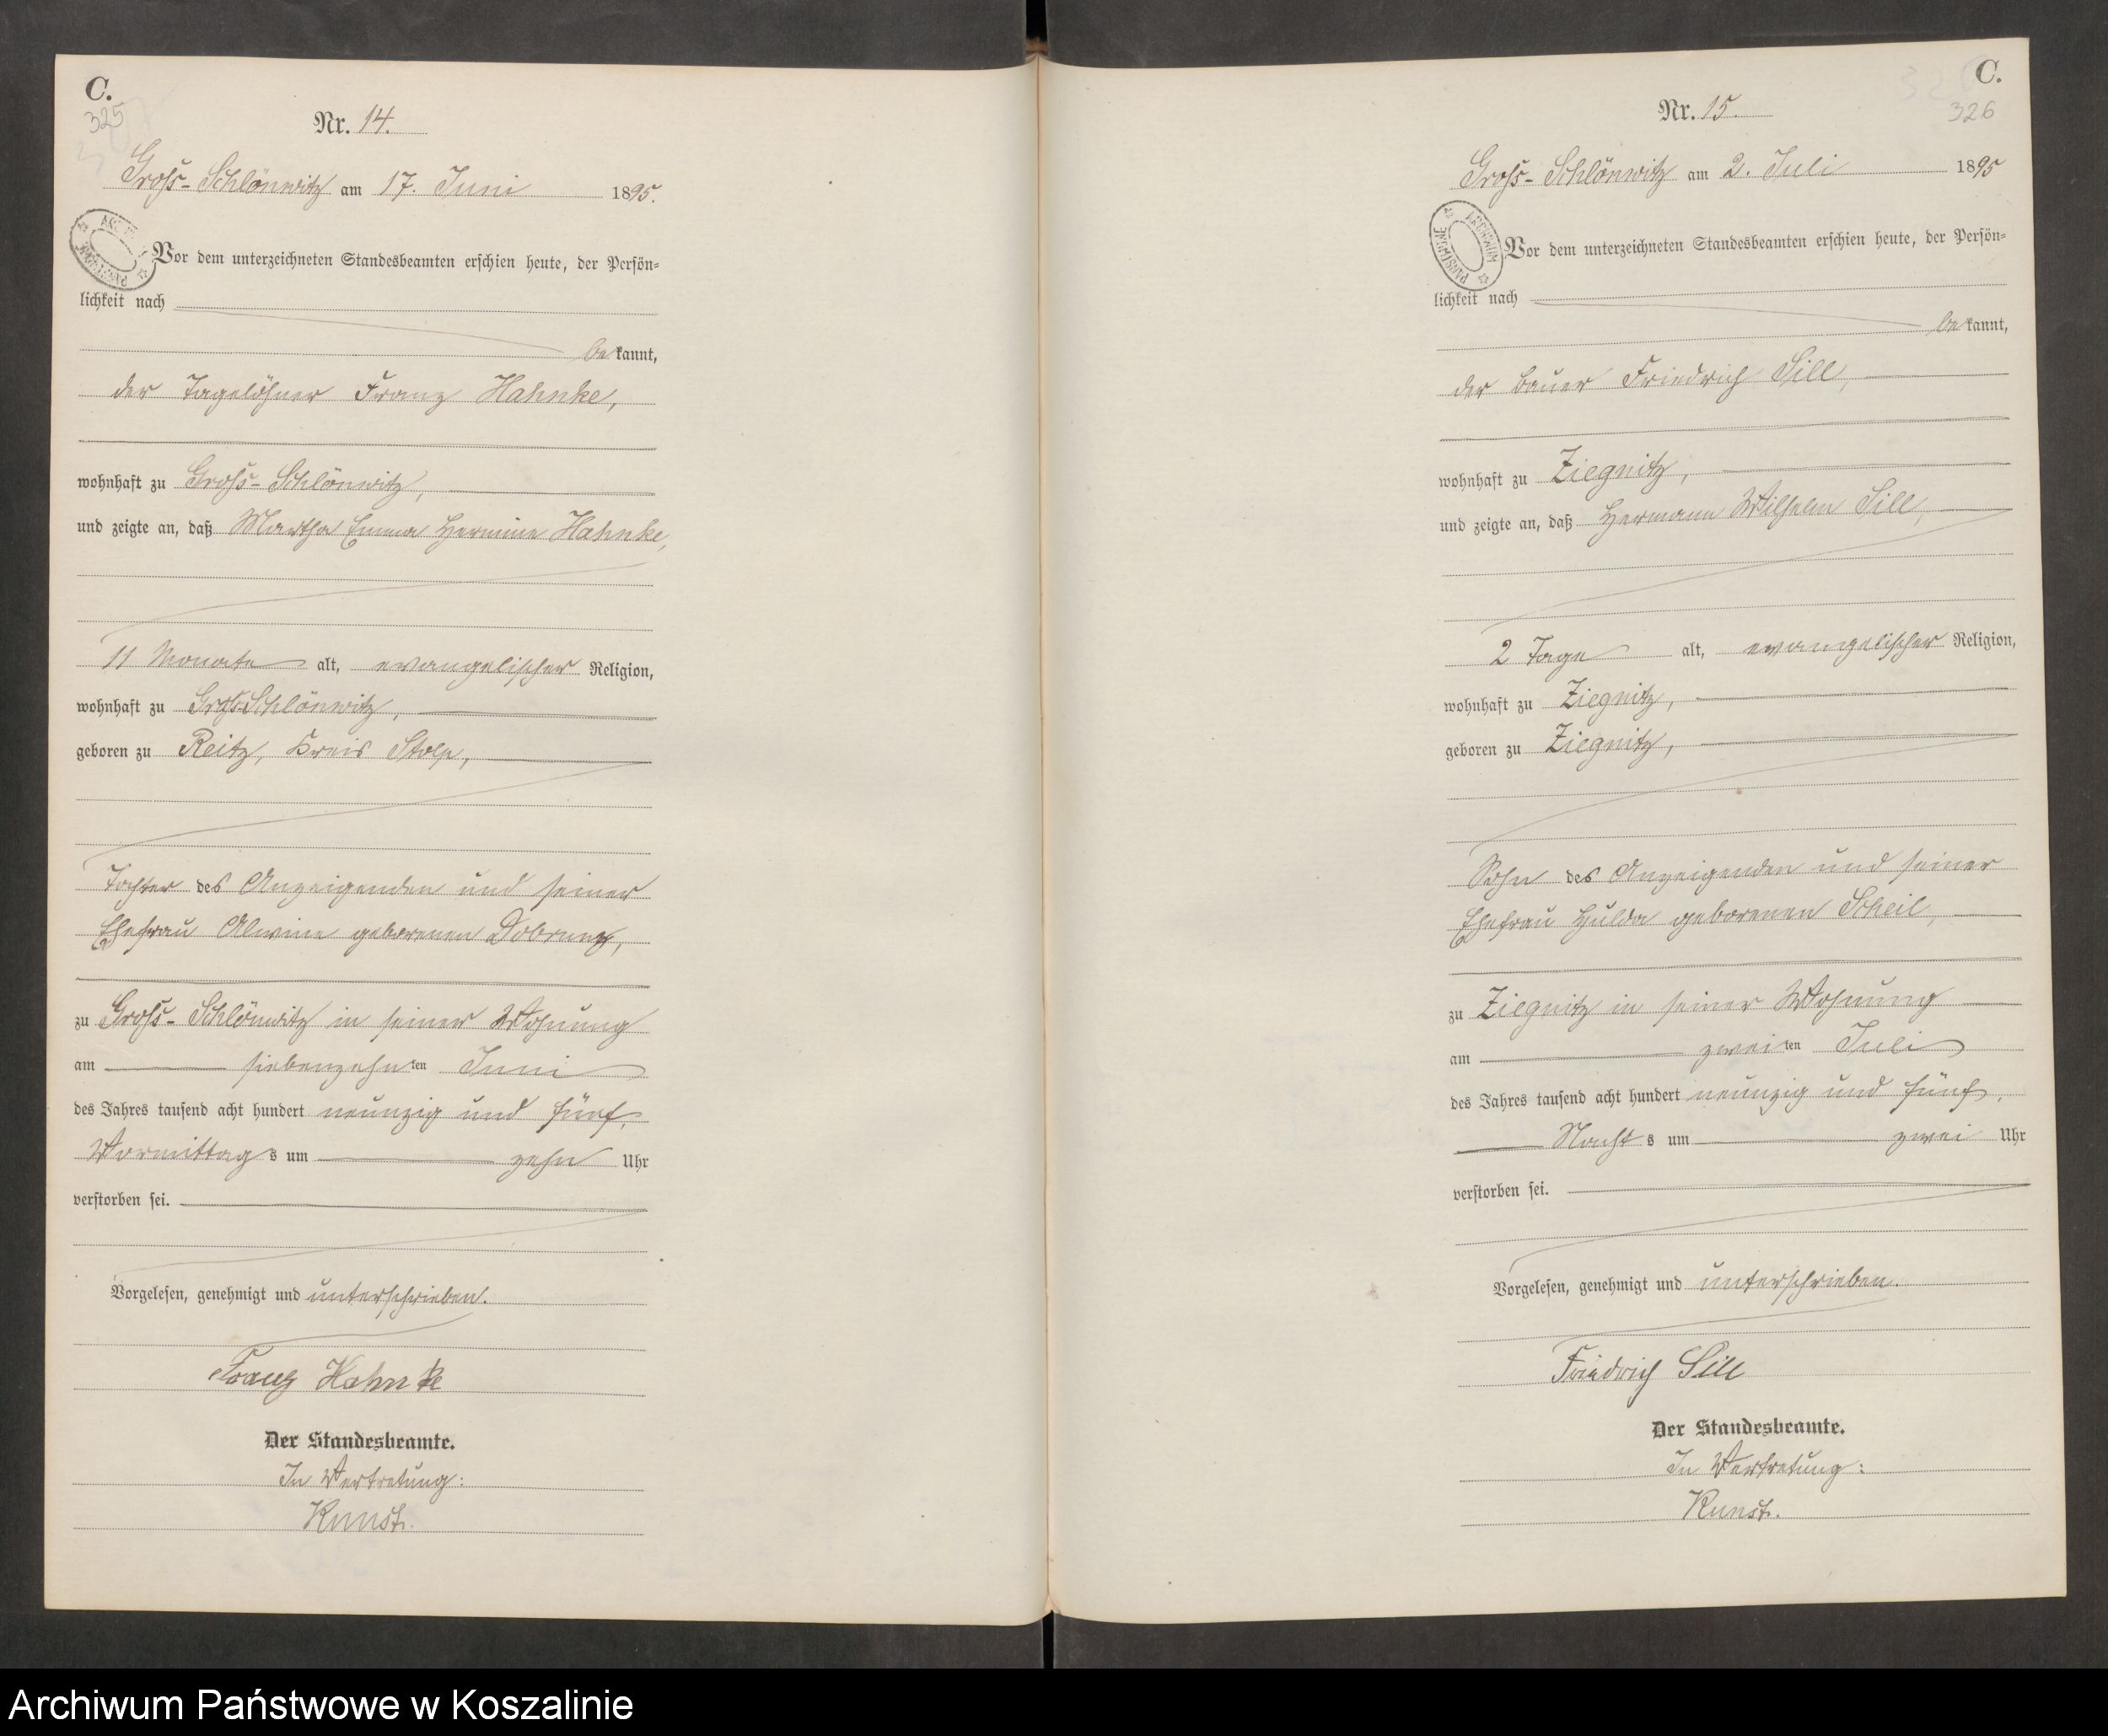 C.
325
Nr. 14.
Groß-Schlönwitz am 17. Juni 1895.
Vor dem unterzeichneten Standesbeamten erschien heute, der Persön-
lichkeit nach
bekannt,
der Tagelöhner Franz Hahnke,
wohnhaft zu Groß-Schlönwitz,
und zeigte an, daß Martha Emma Hermine Hahnke,
11 Monate alt, evangelischer Religion,
wohnhaft zu Groß-Schlönwitz,
geboren zu Reitz, Kreis Stolp,
Tochter des Anzeigenden und seiner
Ehefrau Alwine geborenen Dobrunz,
zu Groß-Schlönwitz in seiner Wohnung
am siebenzehnten Juni
des Jahres tausend acht hundert neunzig und fünf,
Vormittags um zehn Uhr
verstorben sei.
Vorgelesen, genehmigt und unterschrieben.
Franz Hahnke
Der Standesbeamte.
In Vertretung:
Kunst.
C.
326
Nr. 15.
Groß-Schlönwitz am 2. Juli 1895
ARCHIWUM PAŃSTWOWE
Vor dem unterzeichneten Standesbeamten erschien heute, der Persön-
lichkeit nach
bekannt,
der Bauer Friedrich Sill,
wohnhaft zu Ziegnitz,
und zeigte an, daß Hermann Wilhelm Sill,
2 Tage alt, evangelischer Religion,
wohnhaft zu Ziegnitz,
geboren zu Ziegnitz,
Sohn des Anzeigenden und seiner
Ehefrau Hulda geborenen Scheil,
zu Ziegnitz in seiner Wohnung
am zweiten Juli
des Jahres tausend acht hundert neunzig und fünf,
Nachts um zwei Uhr
verstorben sei.
Vorgelesen, genehmigt und unterschrieben.
Friedrich Sill
Der Standesbeamte.
In Vertretung:
Kunst.
Archiwum Państwowe w Koszalinie